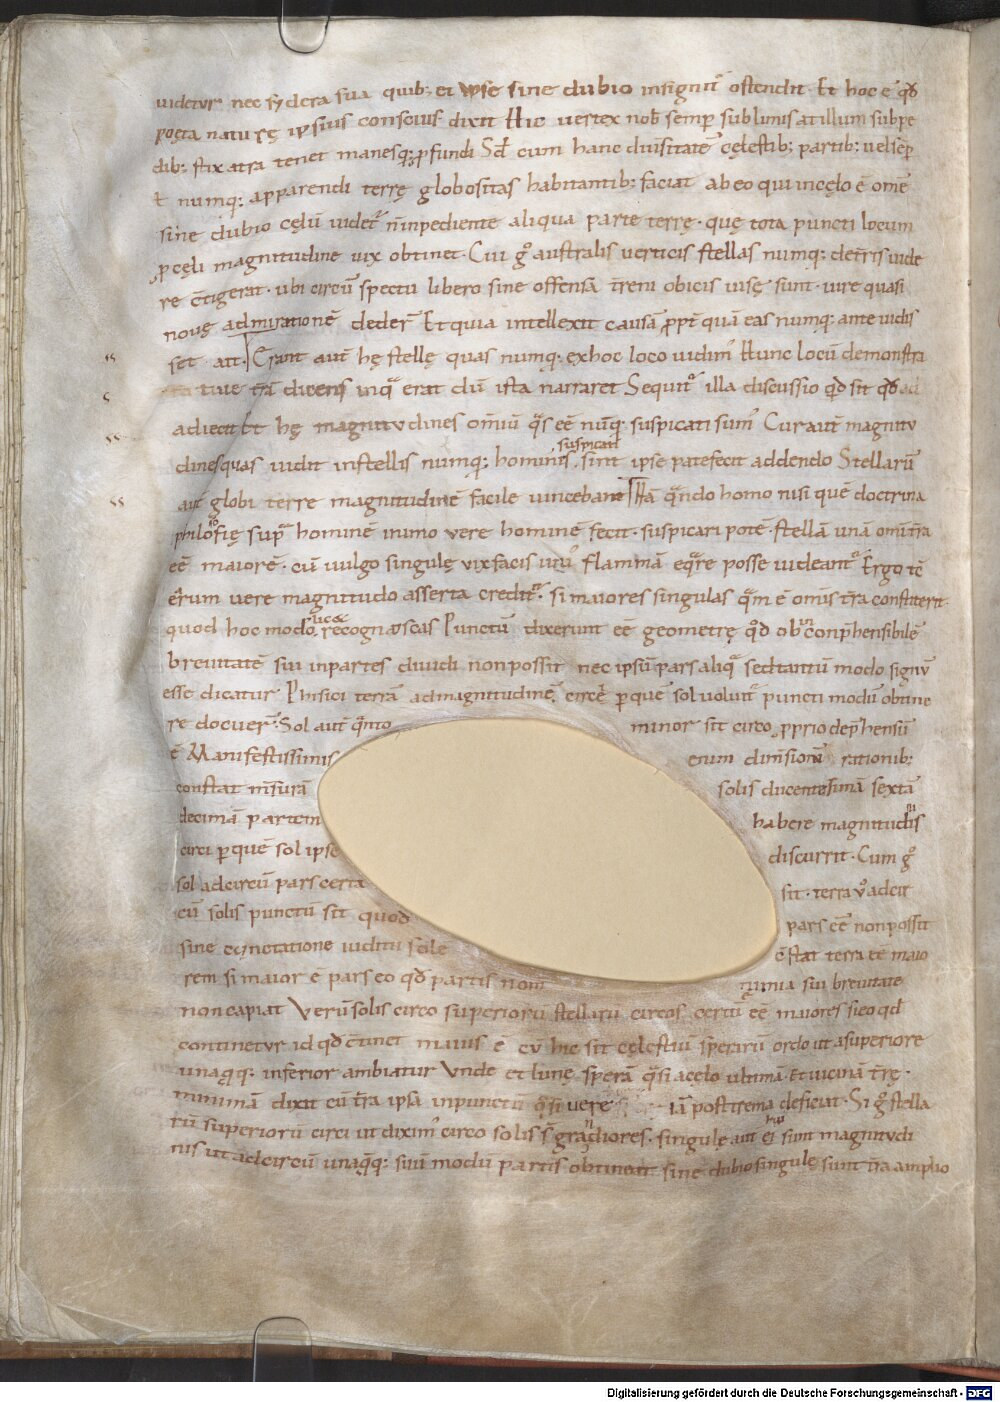 uidetur nec sydera sua quib; et ipse sine dubio insignit᷒ ostendit. Et hoc ē qd̄
poęta naturę ipsius conscius dixit Hic uertex nob̄ semp̄ sublimis at illum subpe
dib; stix atra tenet manesq; ꝓfundi Sed cum hanc diuisitatē cęlestib; partib; uel sēp
t̄ numq; apparendi terrę globositas habitantib; faciat ab eo qui in cęlo ē omē
sine dubio cęlū uidet᷒ n̄ inpediente aliqua parte terrę · quę tota puncti locum
ꝓ cęli magnitudine uix obtinet · Cui gͦ australis uerticis stellas numq; de tr̄ris uide
re c̄tigerat · ubi circū spectu libero sine offensā tr̄eni obicis uisę sunt · iure quasi
nouę admirationē deder̄ Et quia intellexit causā ꝓpt̄ quā eas numq; ante uidis
set · ait · Erant aut̄ hę stellę quas numq; ex hoc loco uidim᷒ Hunc locū demonstra
tiue tr̄ā dicens in qͣ erat dū ista narraret Sequit᷒ illa discussio qd̄ sit qd̄ ad
adiecit Et hę magnitudines omīū qͣs eē nūq; suspicati sum᷒ Cur aut̄ magnitu
dines quas uidit in stellis numq; hominis suspicati sint ipse patefecit addendo Stellarū
aut̄ globi terre magnitudinē facile uincebant Nā qͣndo homo nisi quē doctrina
philosofię supͣ hominē immo vere hominē fecit · suspicari potē · stellā unā omī tr̄a
eē maiorē · cū uulgo singulę vix facis uni᷒ flammā eqͣre posse uideant᷒ Ergo tc̄
eͣrum uere magnitudo asserta credit᷒ · si maiores singulas qͣm ē omīs tr̄a constiterit
quod hoc modo licet recognoscas Punctū dixerunt eē geometrę qd̄ ob incomp̄hensibilē
breuitatē sui in partes diuidi non possit nec ipsū pars aliqͣ sed tantū modo signū
esse dicatur Phisici terrā ad magnitudinē circi per quē sol uoluit᷒ puncti modū obtine
re docuer̄ · Sol aut̄ qͣnto minor sit circo ꝓprio dep̄hensū
ē Manifestissimis enim dimīsionū rationib;
constat m̄surā solis ducentesimā sextā
decimā partem habere magnitudinis
circi per quē sol ipse discurrit · Cum gͦ
sol ad circū pars certa sit · terra vͦ ad cir
cū solis punctū sit quod pars eē non possit
sine cunctatione iuditii sole c̄stat terrā eē maio
rem si maior ē pars eo qd̄ partis nom nimia sui breuitate
non capiat Verū solis circo superiorū stellarū circos certū eē maiores si eo qd̄
continetur id qd̄ c̄tinet maius ē cū hic sit cęlestiū sperarū ordo ut a superiore
unaqq; inferior ambiatur Unde et lunę sperā qͣsi a celo ultimā · Et uicinā tr̄ę ·
minimā dixit cū tr̄a ipsa in punctū qͣsi uere iā postrema deficiat · Si gͦ stella
rū superiorū circi ut diximͦ circo solis s̄ grandiores · singulę aut̄ hui᷒ ei sunt magnitudi
nis ut ad circū unaqq; suū modū partis obtineat sine dubio singulę sunt tr̄a amplio
Digitalisierung gefördert durch die Deutsche Forschungsgemeinschaft - DFG